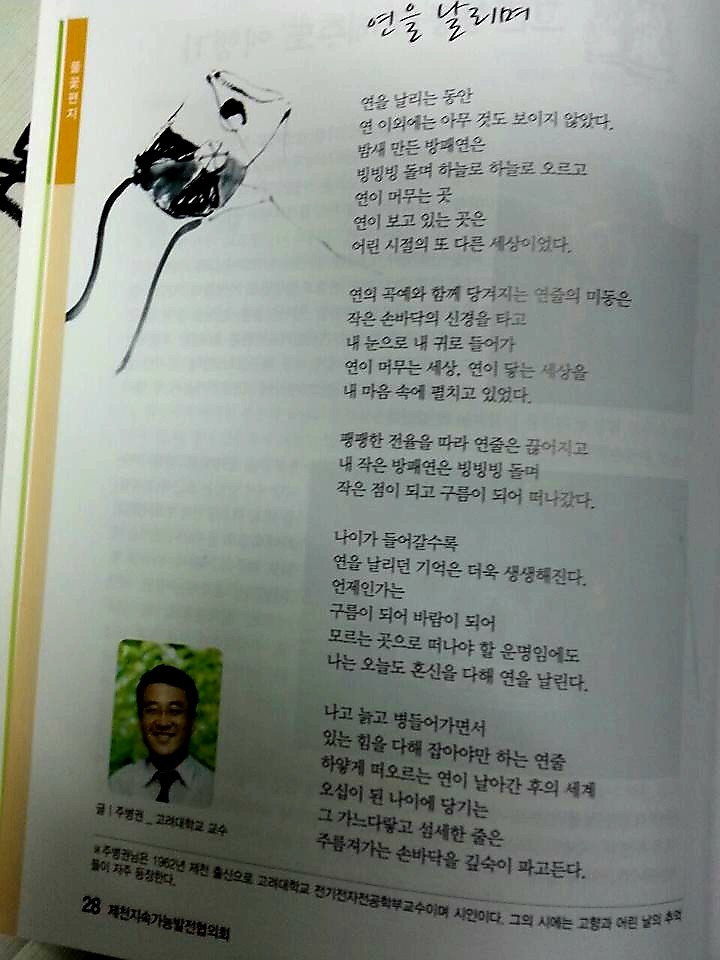 연을 날리며
풀꽃편지
연을 날리는 동안
연 이외에는 아무 것도 보이지 않았다.
밤새 만든 방패연은
빙빙빙 돌며 하늘로 하늘로 오르고
연이 머무는 곳
연이 보고 있는 곳은
어린 시절의 또 다른 세상이었다.
연의 곡예와 함께 당겨지는 연줄의 미동은
작은 손바닥의 신경을 타고
내 눈으로 내 귀로 들어가
연이 머무는 세상, 연이 닿는 세상을
내 마음 속에 펼치고 있었다.
팽팽한 전율을 따라 연줄은 끊어지고
내 작은 방패연은 빙빙빙 돌며
작은 점이 되고 구름이 되어 떠나갔다.
나이가 들어갈수록
연을 날리던 기억은 더욱 생생해진다.
언제인가는
구름이 되어 바람이 되어
모르는 곳으로 떠나야 할 운명임에도
나는 오늘도 혼신을 다해 연을 날린다.
나고 늙고 병들어가면서
있는 힘을 다해 잡아야만 하는 연줄
하얗게 떠오르는 연이 날아간 후의 세계
오십이 된 나이에 당기는
그 가느다랗고 섬세한 줄은
주름져가는 손바닥을 깊숙이 파고든다.
글 | 주병권 _ 고려대학교 교수
※주병권님은 1962년 제천 출신으로 고려대학교 전기전자전공학부교수이며 시인이다. 그의 시에는 고향과 어린 날의 추억
들이 자주 등장한다.
28 제천지속가능발전협의회